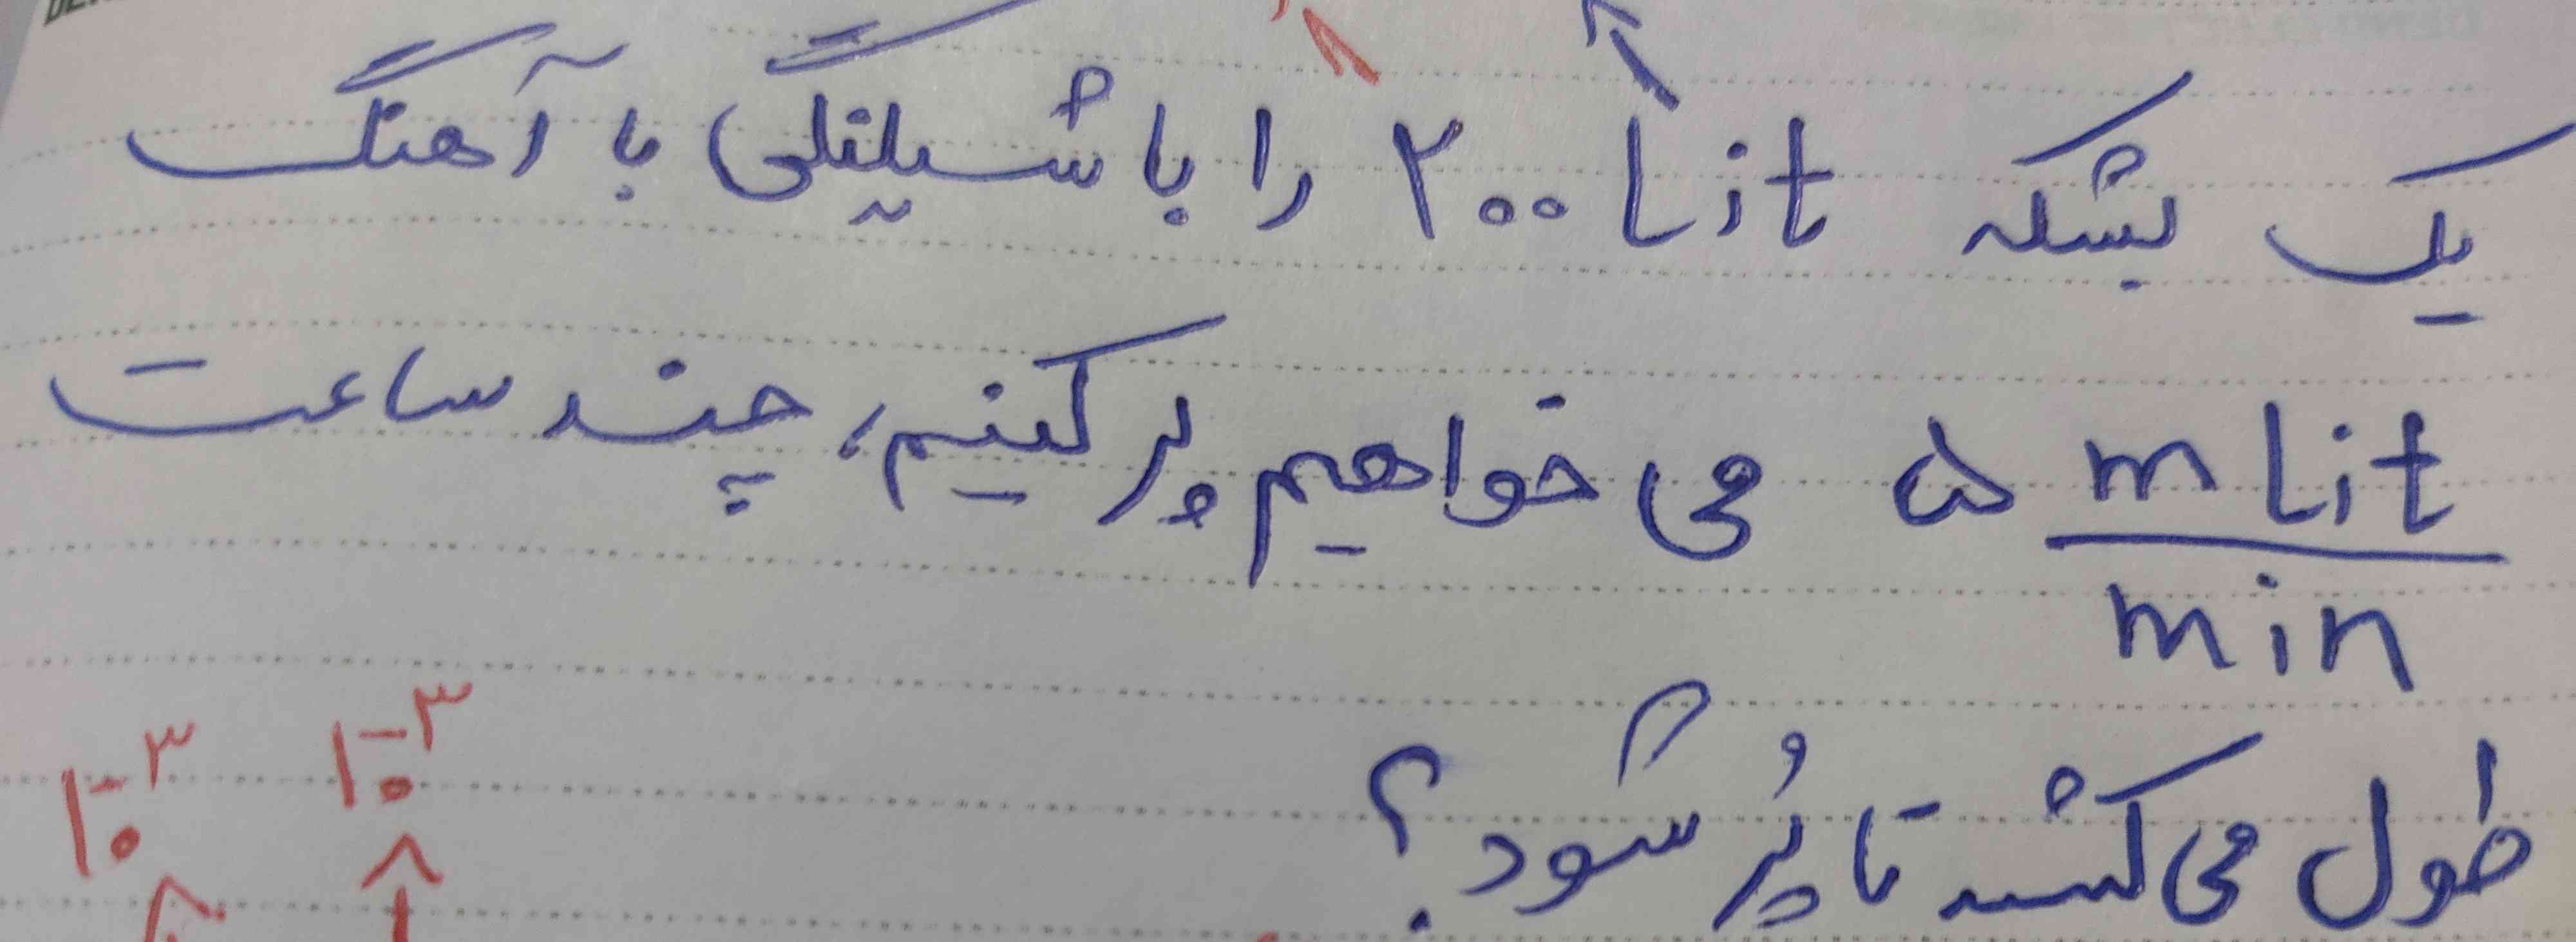 یک بشکه ۲۰۰ Lit را با شیلنگی با آهنگ
۵ mLit/min می‌خواهیم پر کنیم، چند ساعت
طول می‌کشد تا پُر شود؟
۱۰⁻³ ۱۰⁻³